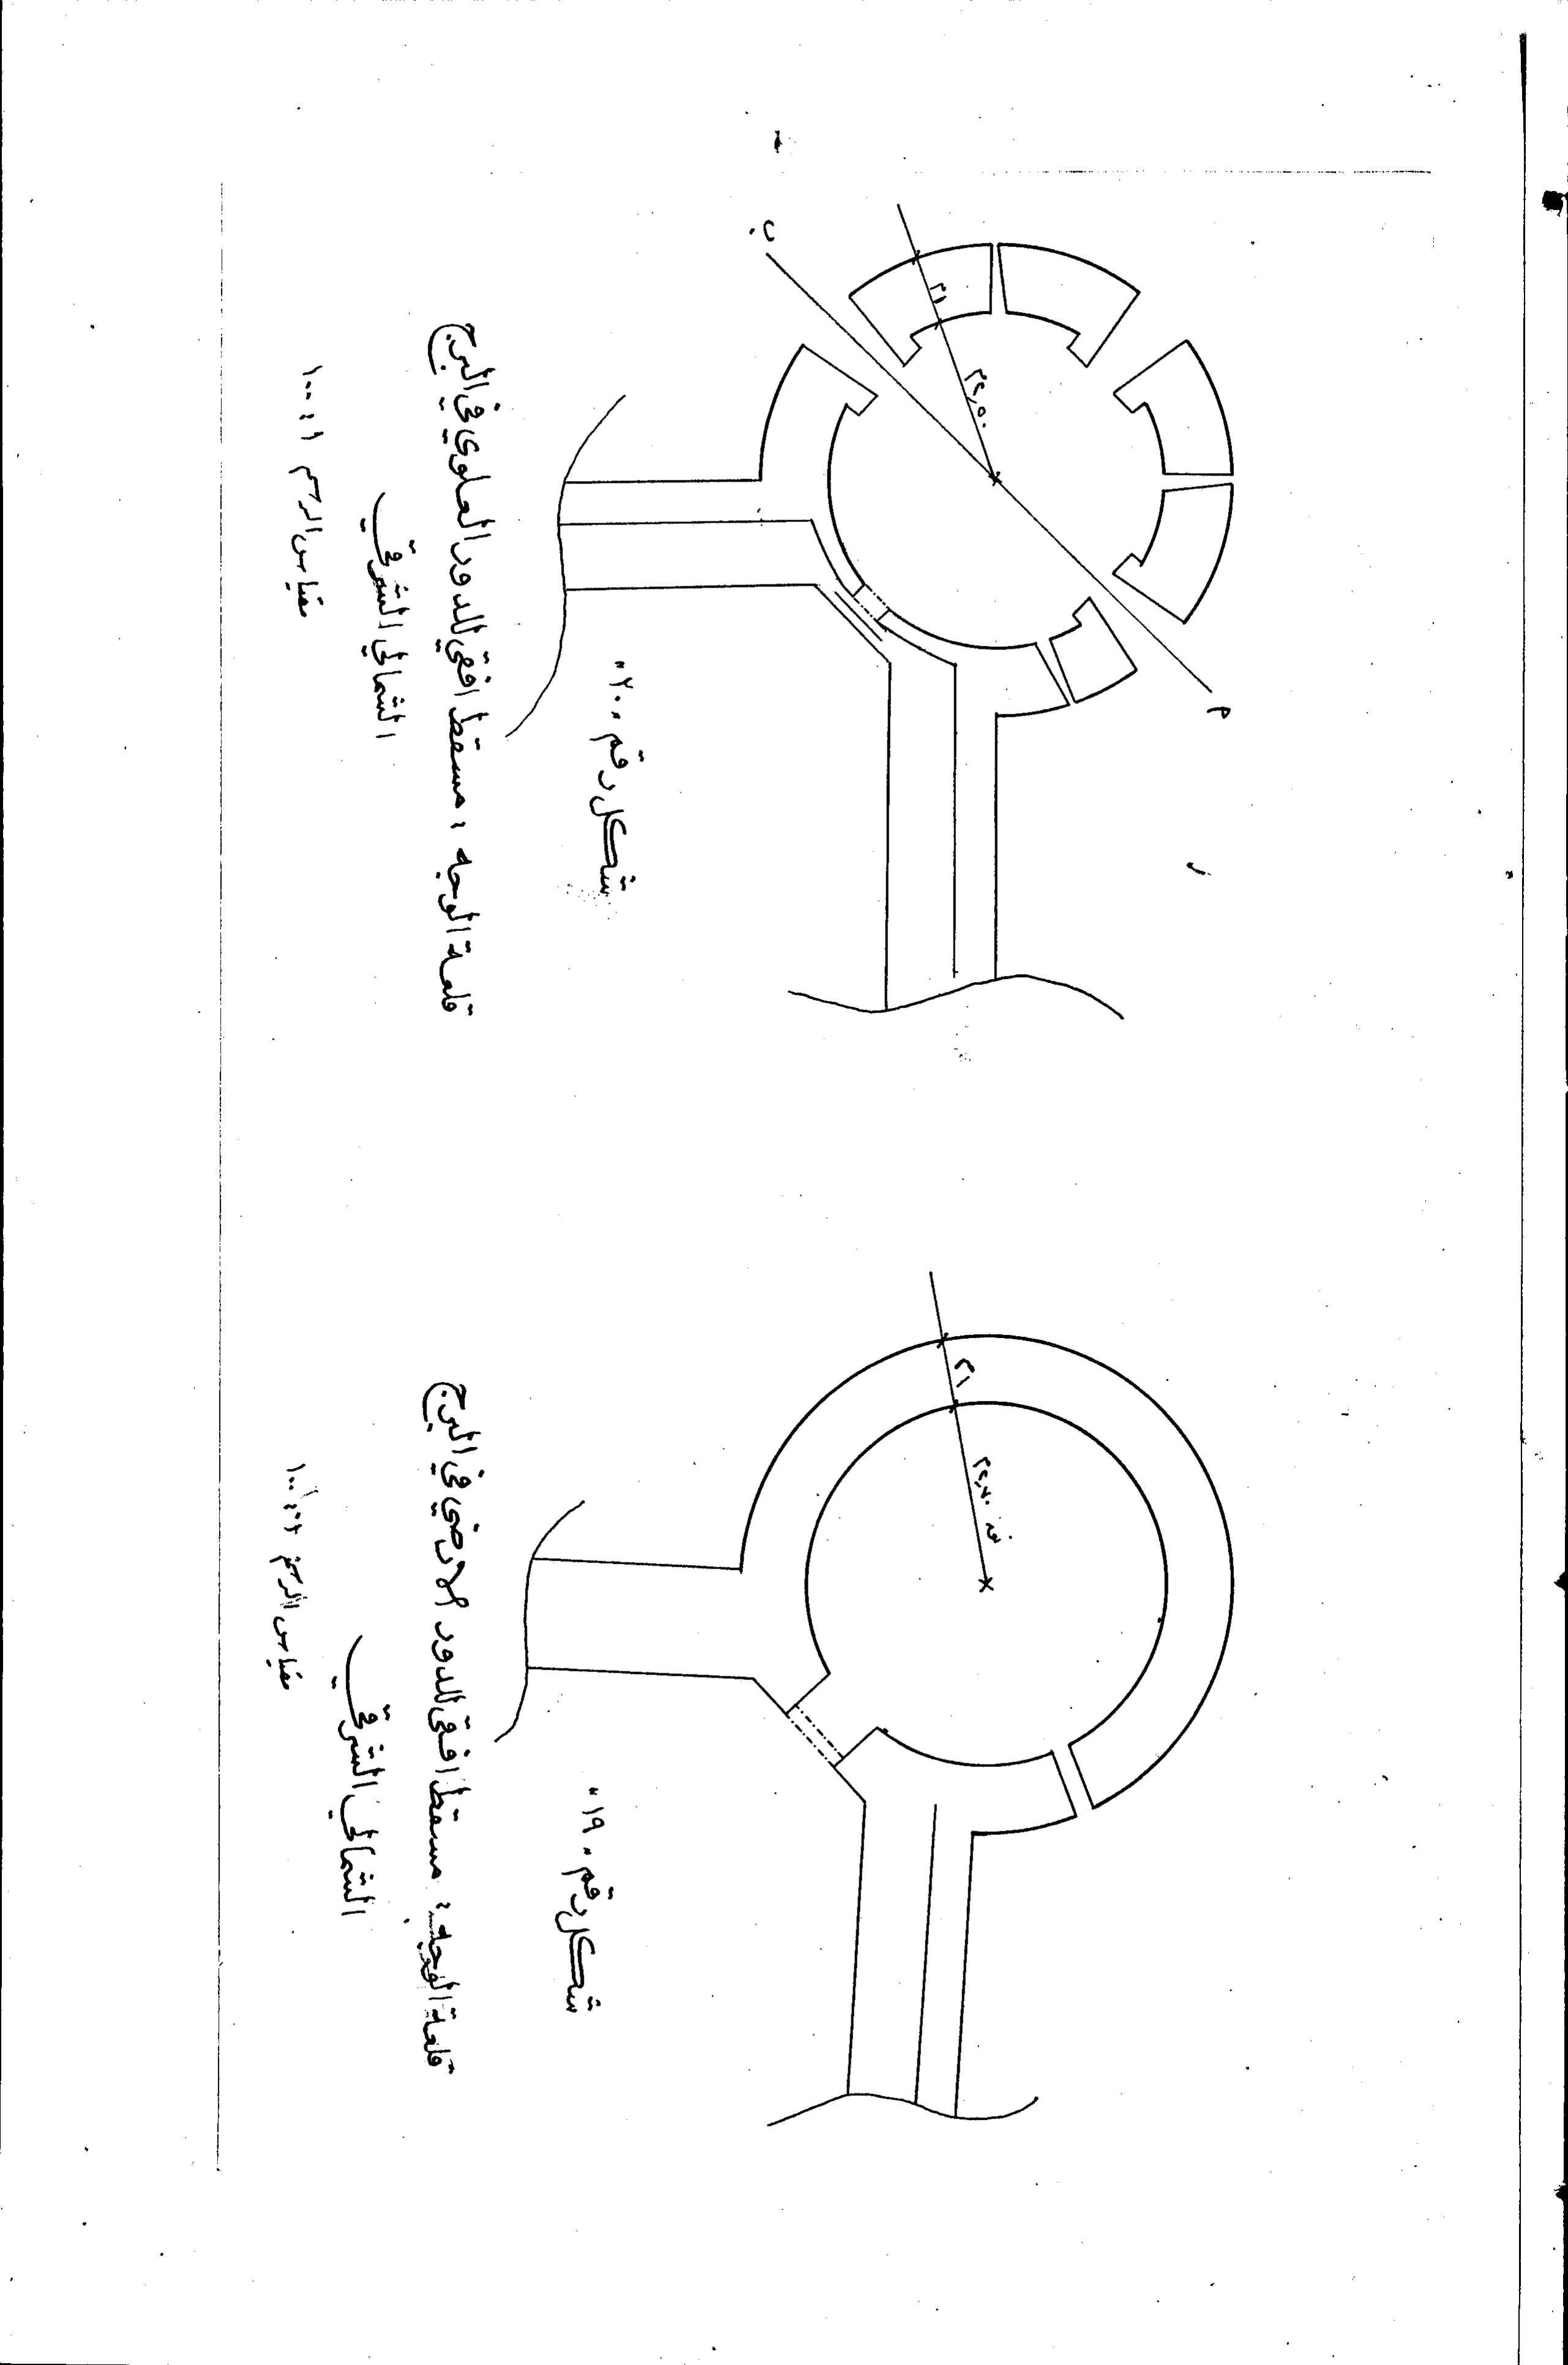 شكل رقم "٢٠"
قلعة الوجه : مسقط افقي للدور العلوي في البرج
الشمالي الشرقي
مقياس الرسم ١ : ١٠٠
ب
٢٫٥٠م
١م
شكل رقم "١٩"
قلعة الوجه : مسقط افقي للدور الارضي في البرج
الشمالي الشرقي
مقياس الرسم ١ : ١٠٠
١م